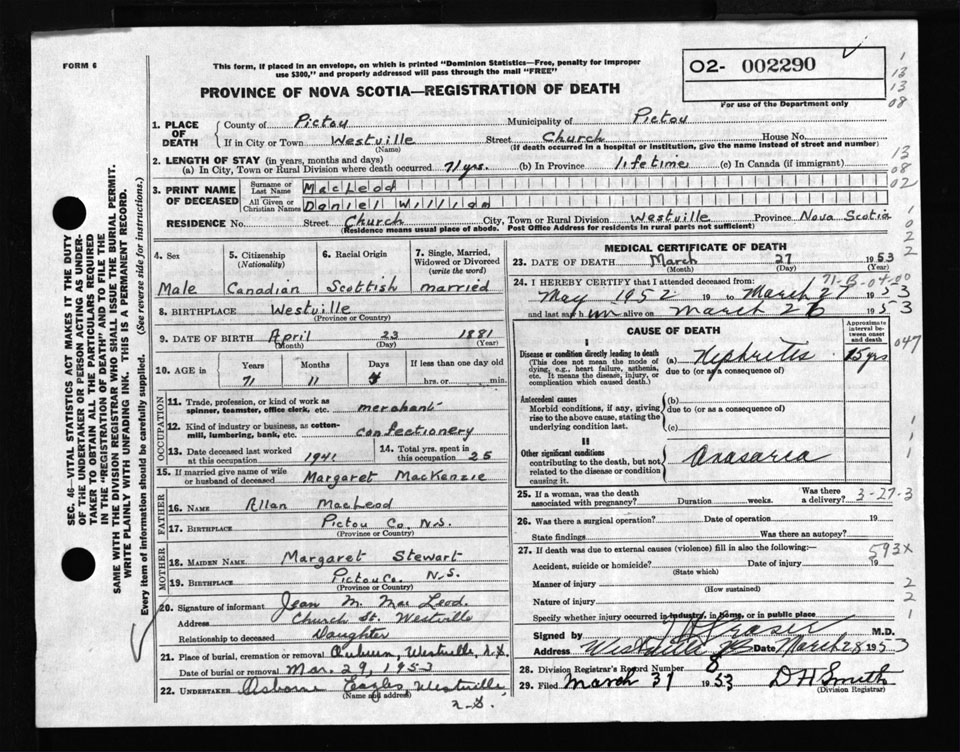 FORM 6
This form, if placed in an envelope, on which is printed "Dominion Statistics—Free, penalty for improper
use $300," and properly addressed will pass through the mail "FREE"
O2- 002290
For use of the Department only
PROVINCE OF NOVA SCOTIA—REGISTRATION OF DEATH
1. PLACE OF DEATH County of Pictou Municipality of Pictou
If in City or Town Westville Street Church House No.
(Name) (If death occurred in a hospital or institution, give the name instead of street and number)
2. LENGTH OF STAY (in years, months and days)
(a) In City, Town or Rural Division where death occurred 71 yrs. (b) In Province lifetime (c) In Canada (if immigrant)
3. PRINT NAME OF DECEASED Surname or Last Name MacLeod
All Given or Christian Names Daniel William
RESIDENCE No. Street Church City, Town or Rural Division Westville Province Nova Scotia
(Residence means usual place of abode. Post Office Address for residents in rural parts not sufficient)
4. Sex Male
5. Citizenship (Nationality) Canadian
6. Racial Origin Scottish
7. Single, Married, Widowed or Divorced (write the word) married
8. BIRTHPLACE Westville
(Province or Country)
9. DATE OF BIRTH April 23 1881
(Month) (Day) (Year)
10. AGE in Years Months Days If less than one day old
71 11 hrs. or min.
OCCUPATION
11. Trade, profession, or kind of work as spinner, teamster, office clerk, etc. merchant
12. Kind of industry or business, as cotton-mill, lumbering, bank, etc. confectionery
13. Date deceased last worked at this occupation 1941
14. Total yrs. spent in this occupation 25
15. If married give name of wife or husband of deceased Margaret MacKenzie
FATHER
16. NAME Allan MacLeod
17. BIRTHPLACE Pictou Co. N.S.
(Province or Country)
MOTHER
18. MAIDEN NAME Margaret Stewart
19. BIRTHPLACE Pictou Co. N.S.
(Province or Country)
20. Signature of informant Jean M. MacLeod
Address Church St. Westville
Relationship to deceased Daughter
21. Place of burial, cremation or removal Auburn, Westville, N.S.
Date of burial or removal Mar. 29, 1953
22. UNDERTAKER Osborne Eagles, Westville,
(Name and address) N.S.
MEDICAL CERTIFICATE OF DEATH
23. DATE OF DEATH March 27 1953
(Month) (Day) (Year)
24. I HEREBY CERTIFY that I attended deceased from:
May 1952 19 to March 27 1953
and last saw him alive on March 26 1953
CAUSE OF DEATH
Approximate interval between onset and death
I
Disease or condition directly leading to death (a) Nephritis 15 yrs
(This does not mean the mode of dying, e.g., heart failure, asthenia, etc. It means the disease, injury, or complication which caused death.)
due to (or as a consequence of)
Antecedent causes
Morbid conditions, if any, giving rise to the above cause, stating the underlying condition last.
(b)
due to (or as a consequence of)
(c)
II
Other significant conditions contributing to the death, but not related to the disease or condition causing it. Anasarca
25. If a woman, was the death associated with pregnancy? Duration weeks. Was there a delivery? 3-27-3
26. Was there a surgical operation? Date of operation 19
State findings Was there an autopsy?
27. If death was due to external causes (violence) fill in also the following:— 593X
Accident, suicide or homicide? Date of injury 19
(State which)
Manner of injury
(How sustained)
Nature of injury
Specify whether injury occurred in industry, in home, or in public place
Signed by Fraser M.D.
Address Westville NS Date March 28 1953
28. Division Registrar's Record Number 8
29. Filed March 31 1953 D H Smith
(Division Registrar)
SEC. 46—VITAL STATISTICS ACT MAKES IT THE DUTY
OF THE UNDERTAKER OR PERSON ACTING AS UNDER-
TAKER TO OBTAIN ALL THE PARTICULARS REQUIRED
IN THE "REGISTRATION OF DEATH" AND TO FILE THE
SAME WITH THE DIVISION REGISTRAR WHO SHALL ISSUE THE BURIAL PERMIT.
WRITE PLAINLY WITH UNFADING INK. THIS IS A PERMANENT RECORD.
Every item of information should be carefully supplied. (See reverse side for instructions.)
1
13
13
08
13
08
02
1
0
2
2
047
1
1
1
2
2
1